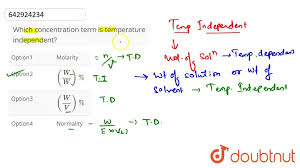 642924434
Which concentration term is temperature
independent?
Option1 Molarity = n/V → T.D
Option2 (W/W) % T.I
Option3 (W/V) % T.D
Option4 Normality - W/(E×V(L)) → T.D.
Temp Independent
Vol. of Solⁿ → Temp. dependent
Wt of solution or wt of
solvent → Temp. Independent
doubtnut